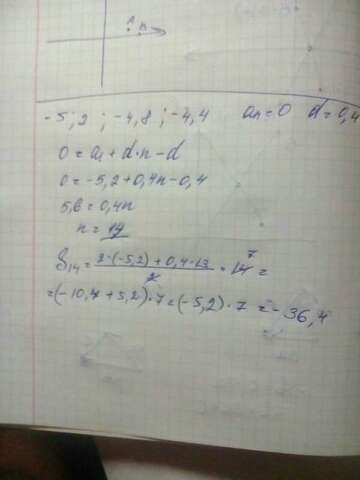 A B
-5,2 ; -4,8 ; -4,4 an=0 d=0,4
0=a1+d·n-d
0=-5,2+0,4n-0,4
5,6=0,4n
n=14
S14=2·(-5,2)+0,4·13/2·14 7=
=(-10,4+5,2)·7=(-5,2)·7=-36,4